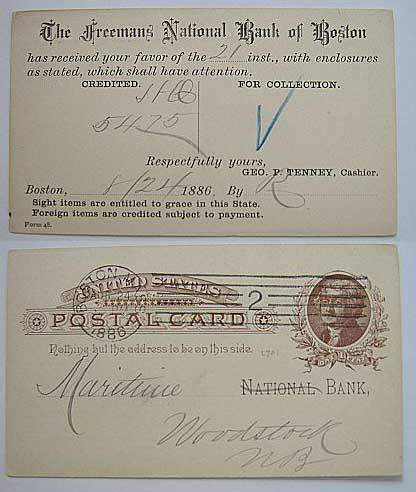 The Freemans National Bank of Boston
has received your favor of the 21 inst., with enclosures
as stated, which shall have attention.
CREDITED. FOR COLLECTION.
5475
Respectfully yours,
GEO. P. TENNEY, Cashier.
Boston, 8/24 1886. By
Sight items are entitled to grace in this State.
Foreign items are credited subject to payment.
Form 48.
BOSTON
1886
2
UNITED STATES
POSTAL CARD
Nothing but the address to be on this side.
Maritime NATIONAL BANK,
Woodstock
NB